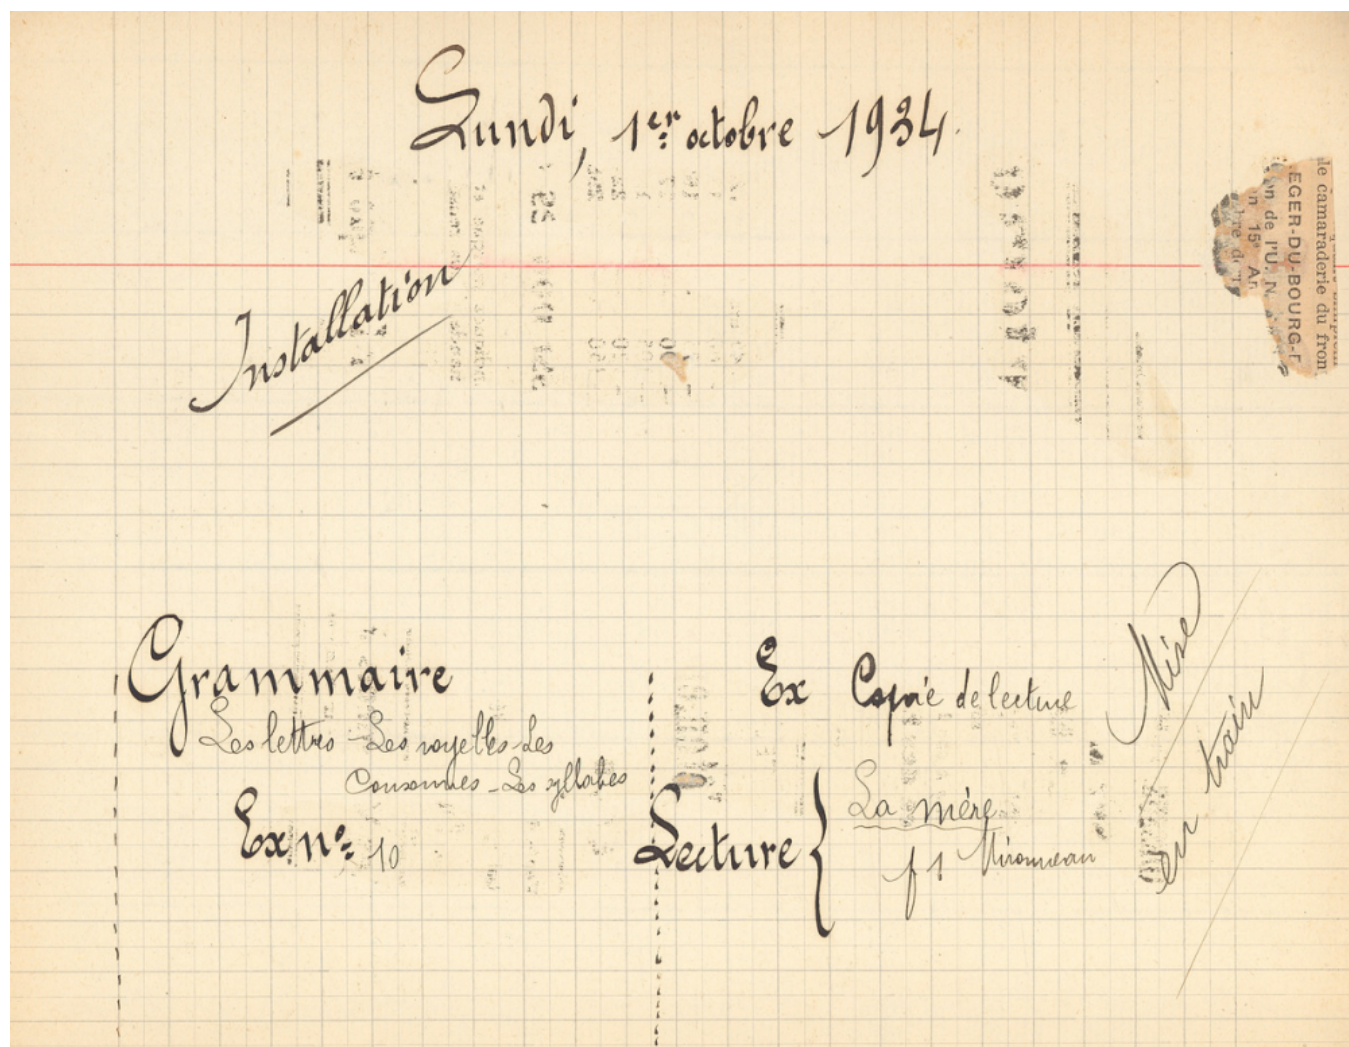 Lundi, 1er octobre 1934.
de camaraderie du fron
EGER-DU-BOURG-
on de l'U. N.
n 15e Ar
bre d
Installation
Grammaire
Les lettres - Les voyelles - Les
Consonnes - Les syllabes
Ex no 10
Ex Copie de lecture
Lecture { La mère
p 1 Mironneau
Mise
en train